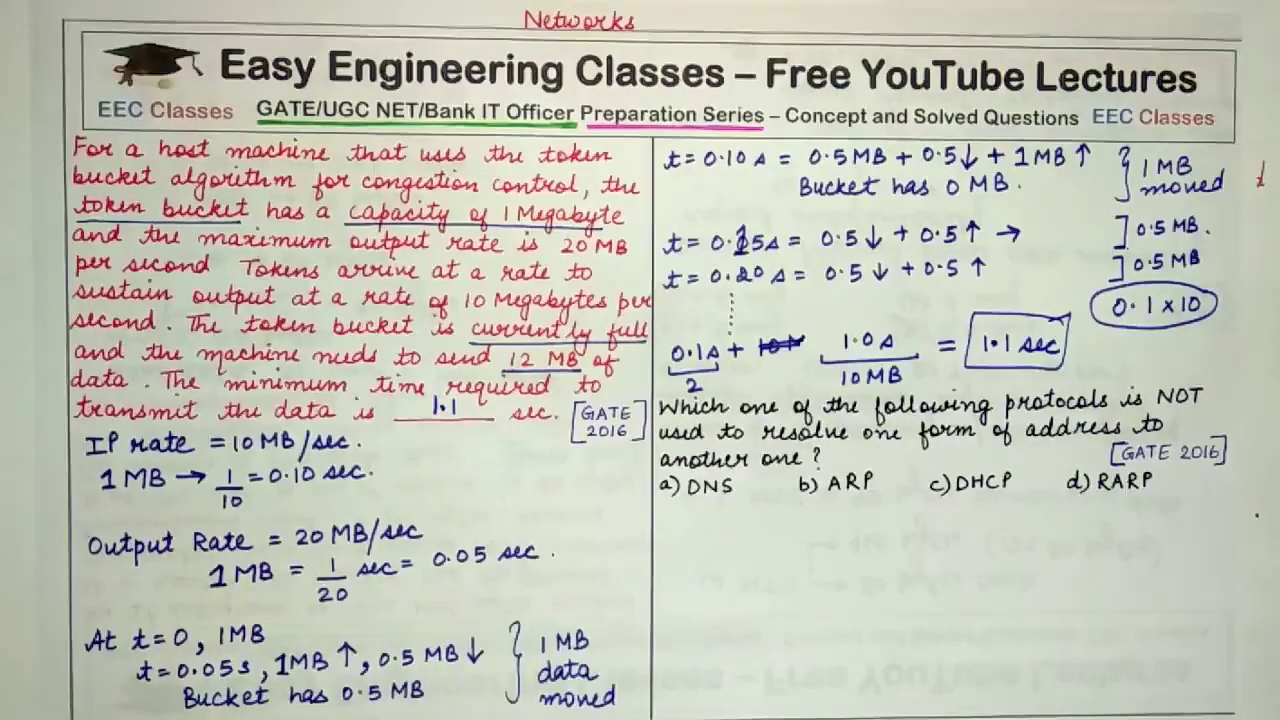 Networks
Easy Engineering Classes – Free YouTube Lectures
EEC Classes GATE/UGC NET/Bank IT Officer Preparation Series – Concept and Solved Questions EEC Classes
For a host machine that uses the token
bucket algorithm for congestion control, the
token bucket has a capacity of 1 Megabyte
and the maximum output rate is 20 MB
per second Tokens arrive at a rate to
sustain output at a rate of 10 Megabytes per
second. The token bucket is currently full
and the machine needs to send 12 MB of
data. The minimum time required to
transmit the data is 1.1 sec. [GATE
2016]
IP rate = 10 MB/sec.
1 MB → 1/10 = 0.10 sec.
Output Rate = 20 MB/sec
1 MB = 1/20 sec = 0.05 sec.
At t=0, 1MB
t=0.05s, 1MB ↑, 0.5 MB ↓
Bucket has 0.5 MB
1 MB
data
moved
t=0.10s = 0.5MB + 0.5↓ + 1MB ↑
Bucket has 0 MB.
1 MB
moved
t=0.15s = 0.5↓ + 0.5↑ → ] 0.5 MB.
t=0.20s = 0.5↓ + 0.5↑ ] 0.5 MB
0.1 x 10
0.1s + 1.0s = 1.1 sec
2 10MB
Which one of the following protocols is NOT
used to resolve one form of address to
another one? [GATE 2016]
a) DNS b) ARP c) DHCP d) RARP